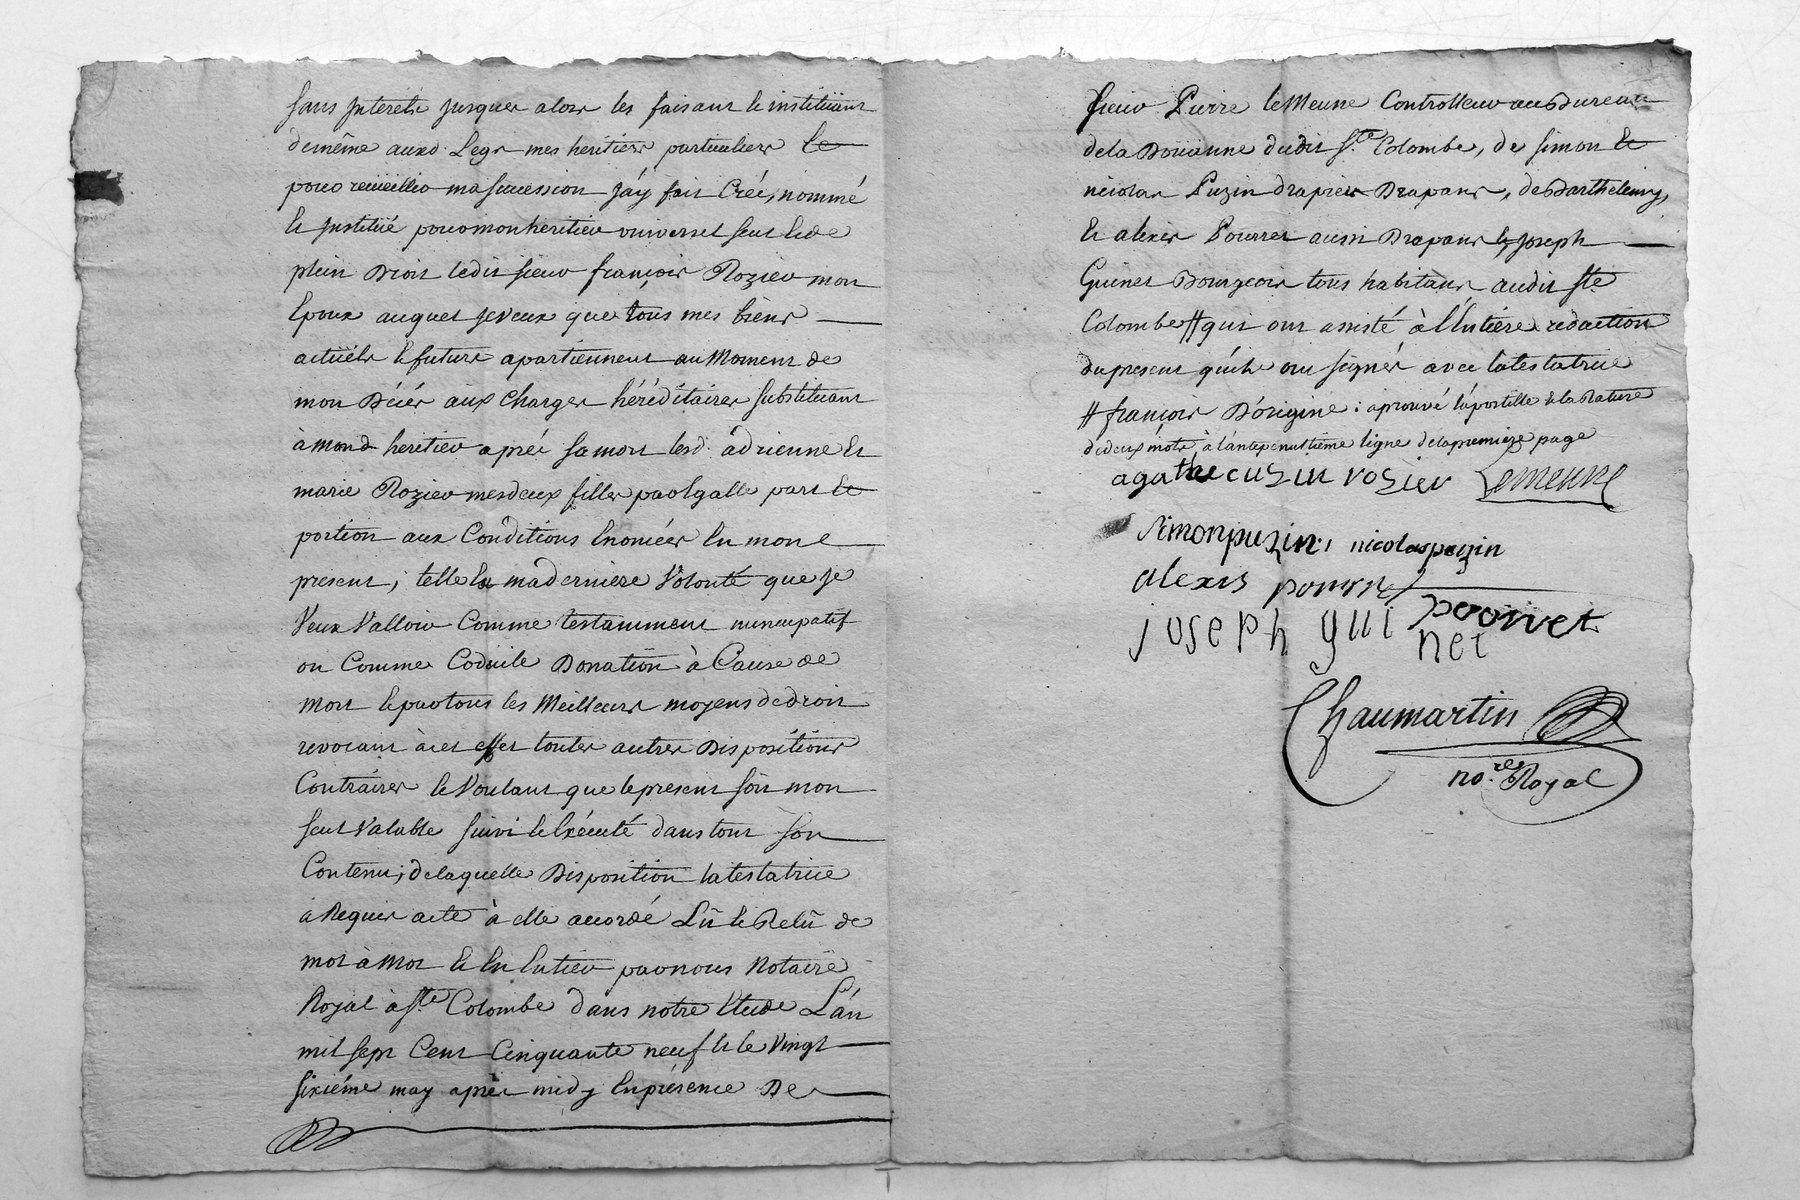 sans jnterets jusques alors les faisant & instituant
de même auxd. Legs mes heritiers particuliers Et
pour recüeillir ma succession j'áy fait Créé, nommé
& jnstitüé pour mon heritier universel seul & de
plein Droit ledit sieur françois Rozier mon
Epoux auquel je veux que tous mes biens
actüels & futurs apartiennent au Moment de
mon Décés aux Charges héréditaires substituant
à mond. heritier aprés sa mort lesd. ádrienne Et
marie Rozier mes deux filles par Egalle part Et
portion aux Conditions Enoncées En mon
present ; telle Est ma derniere Volonté que je
Veux Valloir Comme testamment nuncupatif
ou Comme Codicile Donation à Cause de
Mort & par tous les Meilleurs moyens de droit
revocant à cet effet toutes autres Dispositions
Contraires & Voulant que le present soit mon
seul Valable suivi & Exécuté dans tout son
Contenu ; de laquelle Disposition la testatrice
a Requis acte à elle accordé Lû & Relû de
mot à Mot & En Entier par nous Notaire
Royal à Ste Colombe dans notre Etude L'án
mil sept Cent Cinquante neuf & le Vingt
sixiéme may aprés midy En présence De
sieur Pierre le Meune Controlleur au Bureau
de la Doüanne dudit Ste Colombe, de simon Et
nicolas Puzin drapiers Drapans, de Barthelemy,
Et alexis Pourret aussi Drapans & joseph
Guinet Bourgeois tous habitans audit Ste
Colombe # qui ont assisté à l'Entiere redaction
du present qu'ils ont signés avec la testatrice
# françois D'origine : aprouvé l'apostille & la Rature
de deux mots à l'antepenultiéme ligne de la premiere page
agathe cuzin rozier Lemeune
simon puzin nicolas puzin
alexis pourret
pourret
joseph gui
net
Chaumartin
no.re Royal